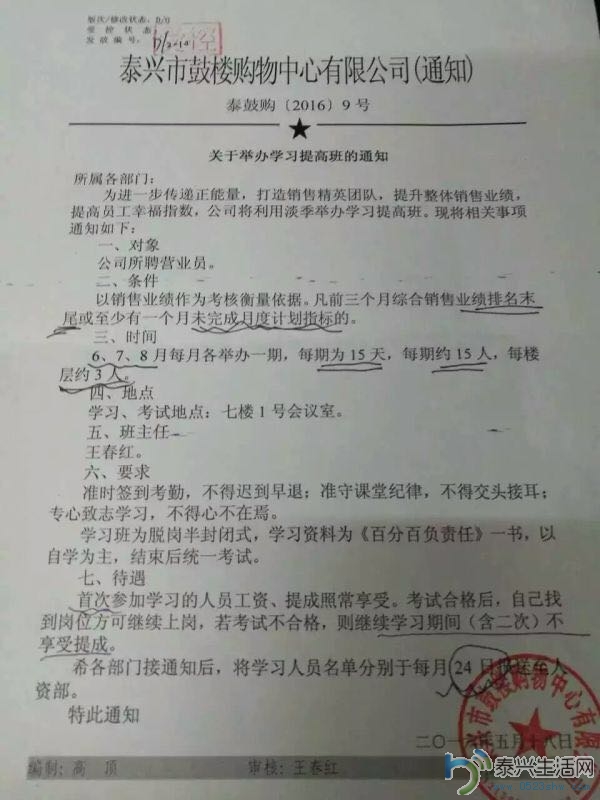 版次/修改状态: D/0
受控状态:
发放编号:
泰兴市鼓楼购物中心有限公司(通知)
泰鼓购〔2016〕9号
关于举办学习提高班的通知
所属各部门:
为进一步传递正能量，打造销售精英团队，提升整体销售业绩，
提高员工幸福指数，公司将利用淡季举办学习提高班。现将相关事项
通知如下:
一、对象
公司所聘营业员。
二、条件
以销售业绩作为考核衡量依据。凡前三个月综合销售业绩排名末
尾或至少有一个月未完成月度计划指标的。
三、时间
6、7、8月每月各举办一期，每期为15天，每期约15人，每楼
层约3人。
四、地点
学习、考试地点: 七楼1号会议室。
五、班主任
王春红。
六、要求
准时签到考勤，不得迟到早退；准守课堂纪律，不得交头接耳；
专心致志学习，不得心不在焉。
学习班为脱岗半封闭式，学习资料为《百分百负责任》一书，以
自学为主，结束后统一考试。
七、待遇
首次参加学习的人员工资、提成照常享受。考试合格后，自己找
到岗位方可继续上岗，若考试不合格，则继续学习期间（含二次）不
享受提成。
希各部门接通知后，将学习人员名单分别于每月24日 人
资部。
特此通知
二〇一六年五月十八日
市鼓楼购物中心有限
编制: 高 顶 审核: 王春红
泰兴生活网
www.0523shw.com